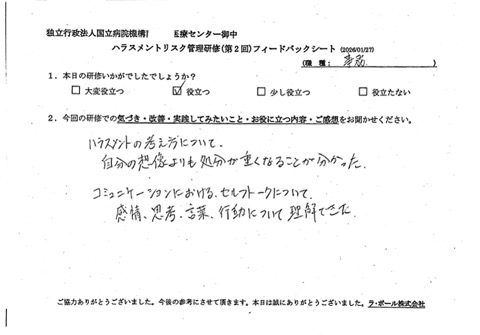 独立行政法人国立病院機構 医療センター御中
ハラスメントリスク管理研修(第2回)フィードバックシート (2026/01/27)
(職 種: 事務 )
1. 本日の研修いかがでしたでしょうか?
□ 大変役立つ ☑ 役立つ □ 少し役立つ □ 役立たない
2. 今回の研修での気づき・改善・実践してみたいこと・お役に立つ内容・ご感想をお聞かせください。
ハラスメントの考え方について、
自分の想像よりも処分が重くなることが分かった。
コミュニケーションにおける、セルフトークについて、
感情、思考、言葉、行動について理解できた。
ご協力ありがとうございました。今後の参考にさせて頂きます。本日は誠にありがとうございました。 ラ・ポール株式会社